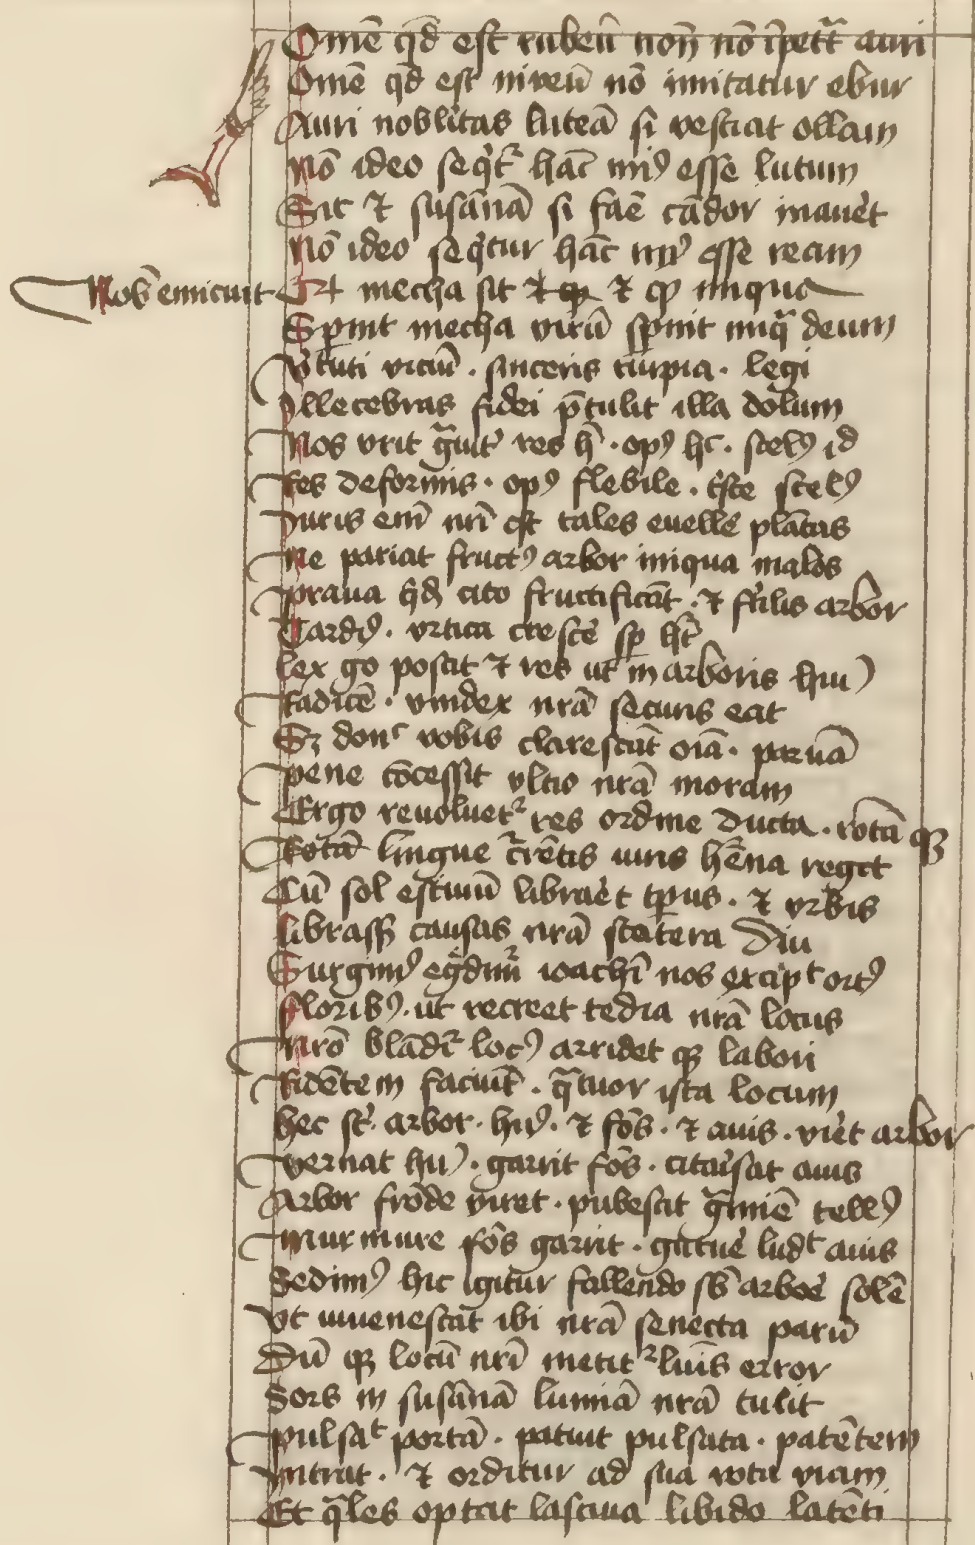 Omē qd est rubeū non nō īpetᷓ auri
Omē qd est niveū nō imitatur ebur
Auri nobilitas luteā si vestiat ollam
Nō ideo seqͥtᷓ hāc miꝰ esse lutum
Sic ⁊ susānā si faē cādor inauret
Nō ideo seqͥtur hāc miꝰ esse ream
Nob emicuit Et mecha sit ⁊ ꝙ ⁊ ꝙ iniqua
Spnit mecha virū spnit iniqᷓ deum
Vtuti viciū . sinceris turpia . legi
Illecebras fidei p̄tulit illa dolum
Nos vrit gᷓuit res h̄ . opꝰ hͨ . scelꝰ id
Res deformis . opꝰ flebile . tͥste scelꝰ
Iuris em̄ nr̄i est tales euellē plātas
Ne pariat fructꝰ arbor iniqua malos
Praua qͥd cito fructificāt . ⁊ stͥlis arbor
Cardꝰ . vrtica crescē sp h̄t
Lex go poscit ⁊ res ut in arboris huiꝰ
Radicē . vindex nr̄a securis eat
Sꝫ donͨ vobis clarescāt oīa . paruā
Pene cōcessit vltio nr̄a moram
Ergo reuoluetᷓ res ordine ducta . rotā qꝫ
Totā lingue tᷓrētis iuris hēna reget
Cū sol estiuū libraret tpus . ⁊ vrbis
librass causas nr̄a statera diu
Surgimꝰ egᷓdimr̄ ioachī nos excipͭ ortꝰ
Floribꝰ . ut recreet tedia nr̄a locus
Nr̄o blādͥ locꝰ arridet qꝫ labori
Ridētem faciūt . qᷓtuor ista locum
hec sͭ . arbor . huꝰ . ⁊ fōs . ⁊ auis . viret arbor
Vernat huꝰ . garrit fōs . citaͥsat auis
Arbor frōde viret . pubescit gᷓmiē tellꝰ
Murmure fōs garrit . guttuē ludͭ auis
Sedimꝰ hic igitur fallendo sb̄ arboē solē
Vt iuuenescāt ibi nr̄a senecta parū
Dū qꝫ locū nr̄i metitᷓ luīs error
Sors in susānā lumīā nr̄a tulit
Pulsaͭ portā . patuit pulsata . patētem
Intrat . ⁊ orditur ad sua vota viam
Et qᷓles optat lasciua libido latēti